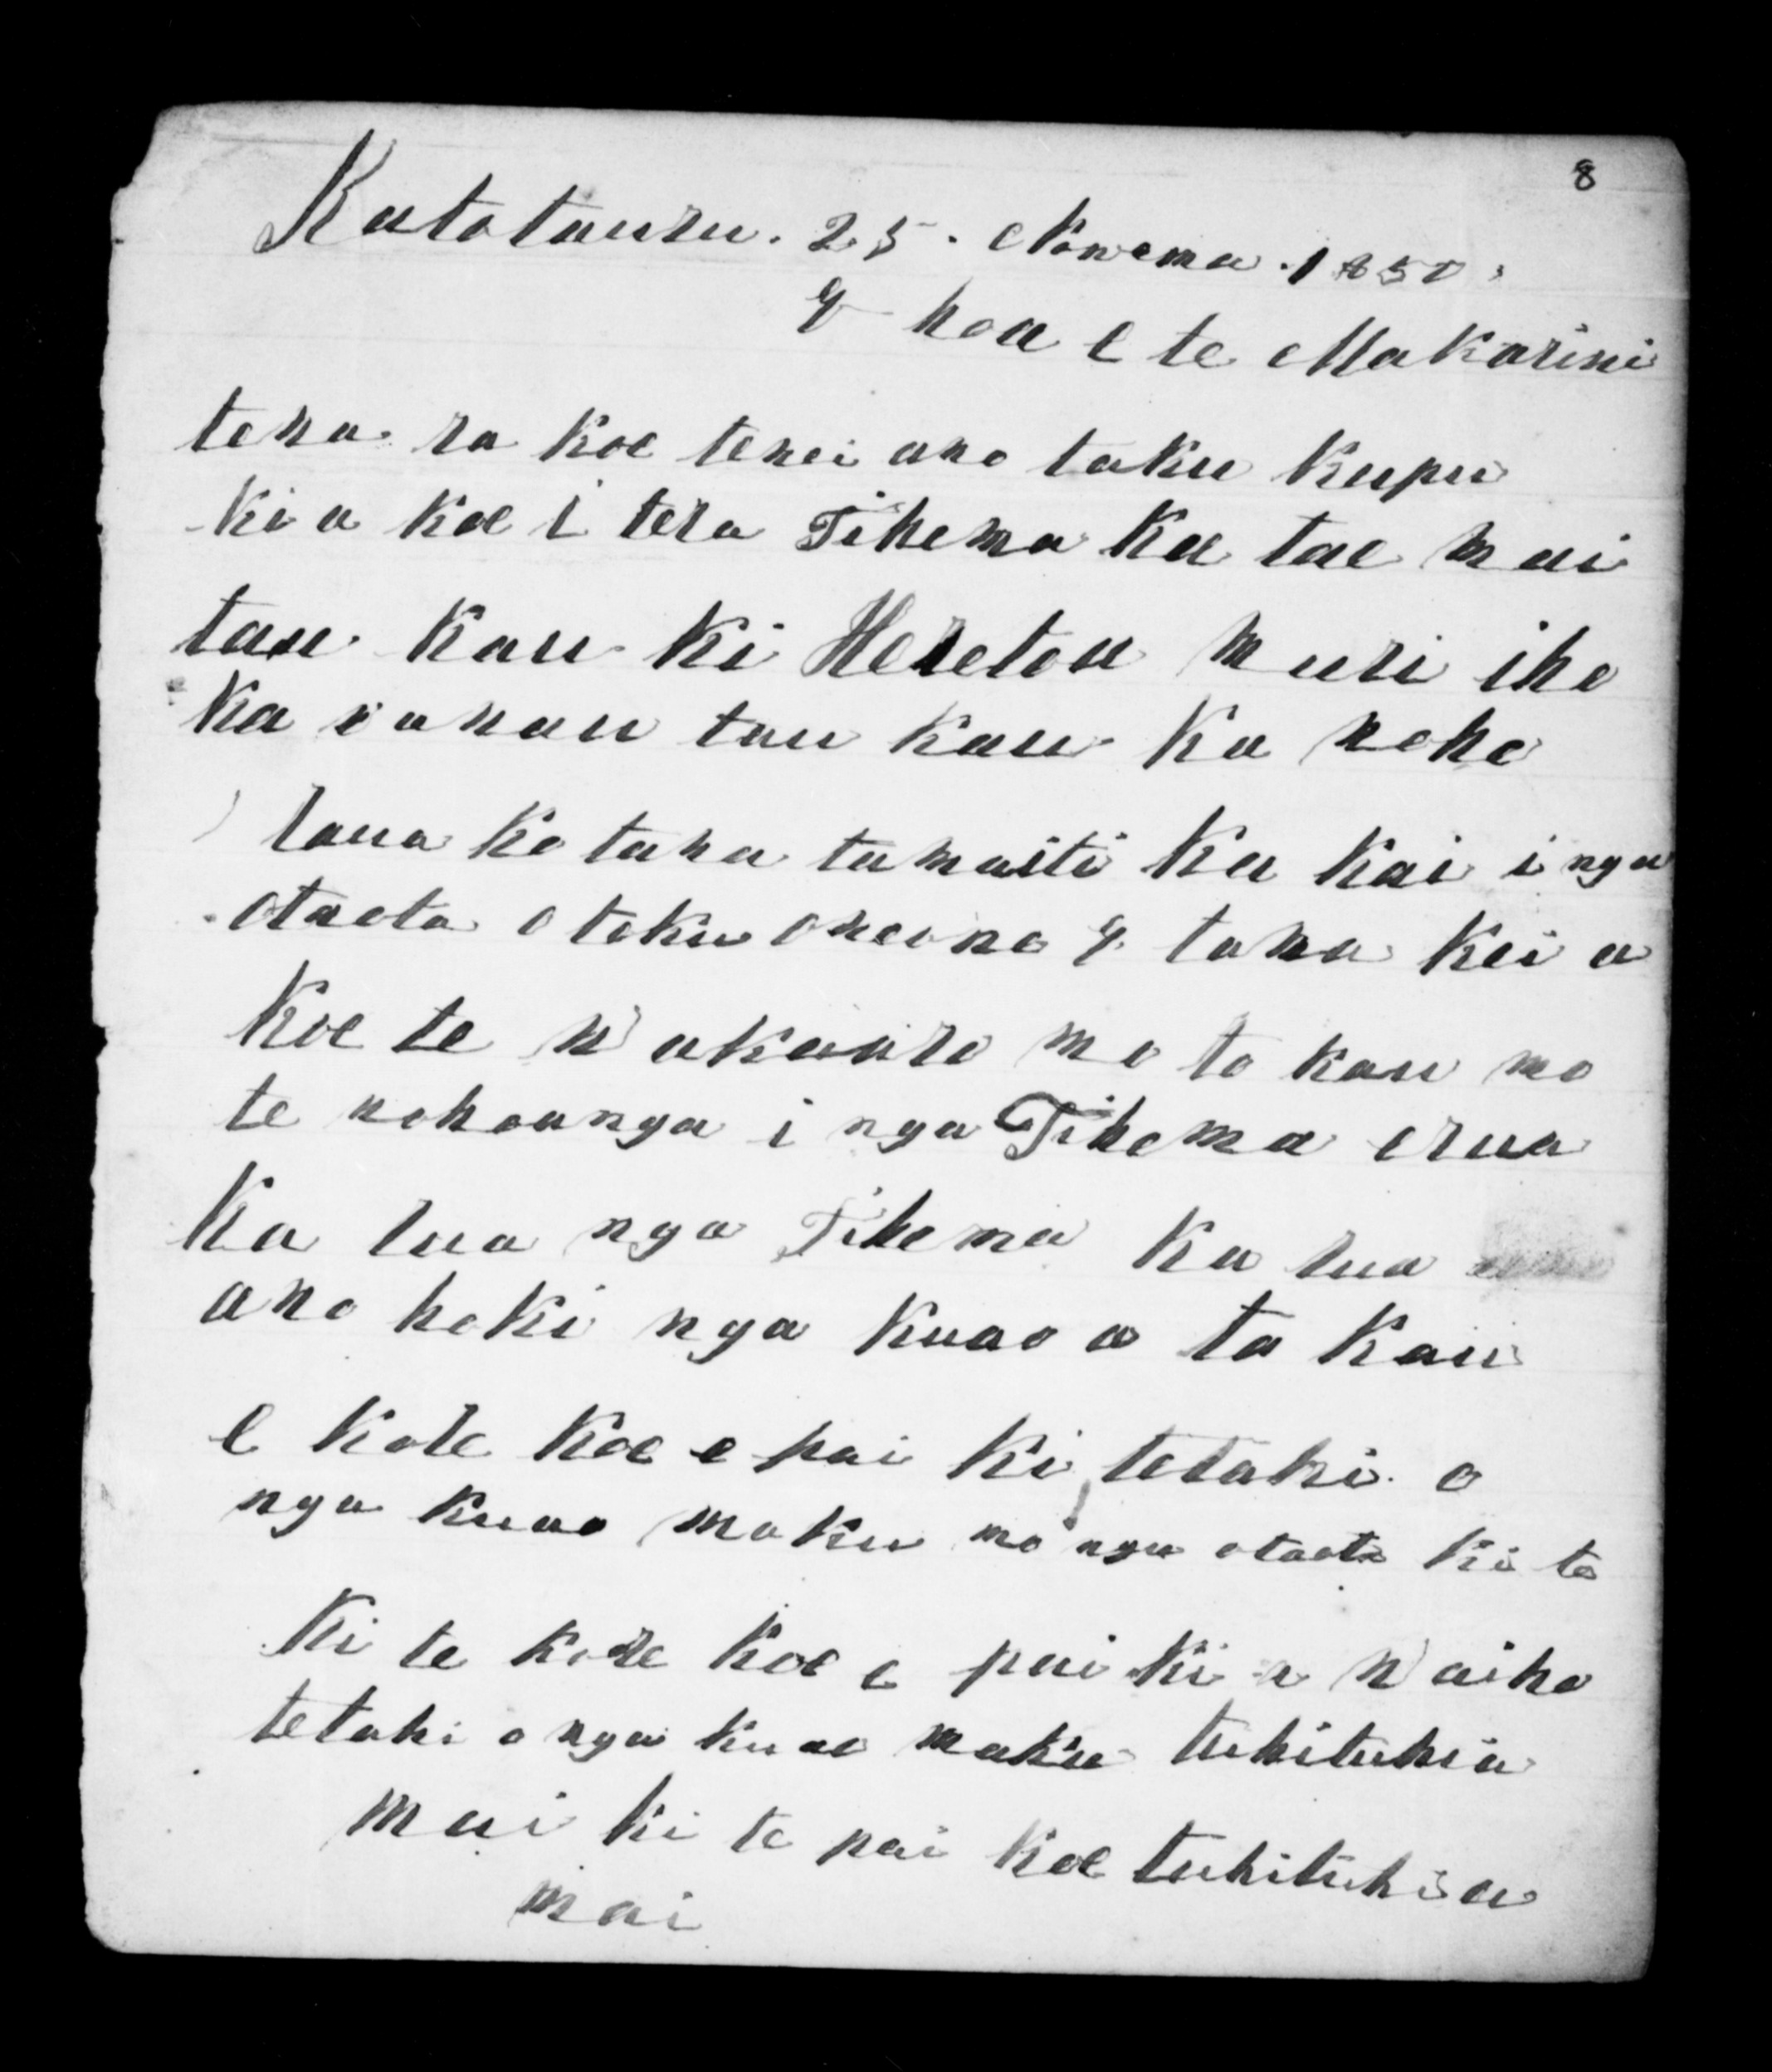 8
Katotauru. 25. Nowema. 1850.
E hoa e te Makarini
tena ra koe tenei ano taku kupu
ki a koe i tera Tihema ka tae mai
tau kau ki Heretoa muri iho
ka w'anau tau kau ka noho
raua ko tana tamaiti ka kai i nga
otaota o toku oneone E tama kei a
koe te w'akaaro mo to kau mo
te nohoanga i nga Tihema erua
Ka rua nga Tihema ka rua
ano hoki nga kuao a to kau
e kore koe e pai ki tetahi o
nga kuao maku mo nga otaota ki te
Ki te kore koe e pai ki a w'aiho
tetahi o nga kuao maku tuhituhia
mai ki te pai koe tuhituhia
mai